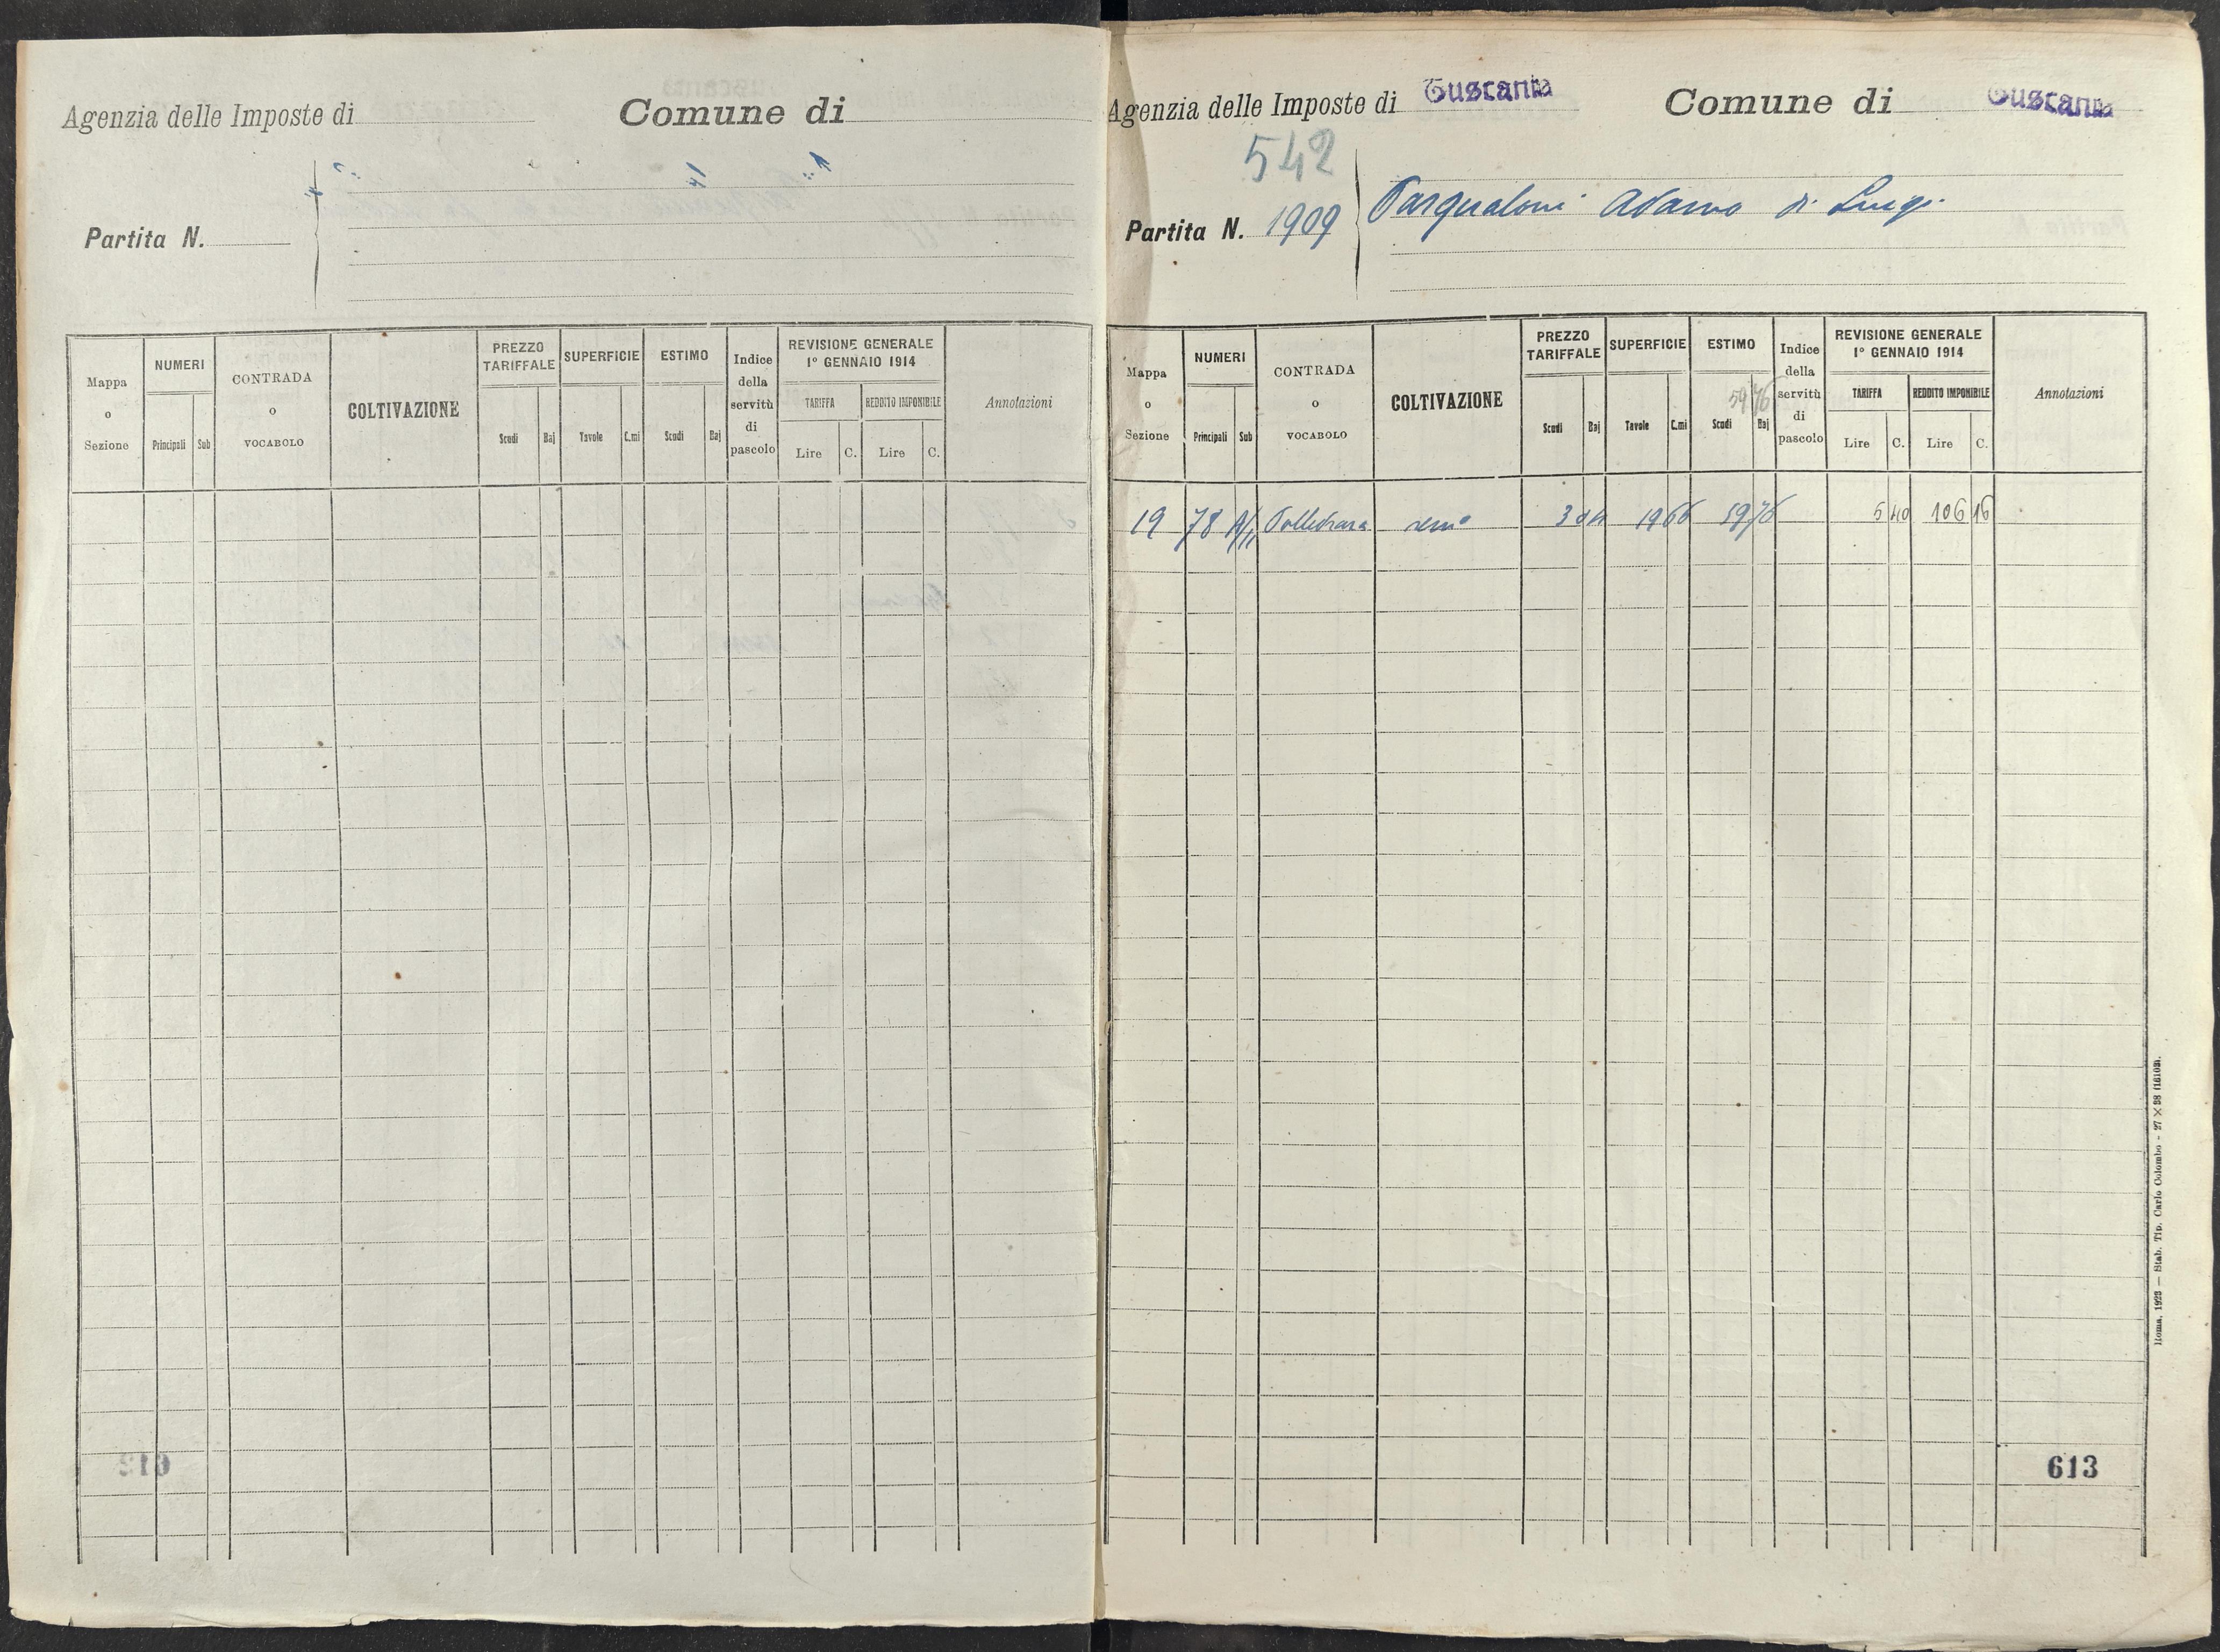 Agenzia delle Imposte di
Comune di
Partita N.
Mappa o Sezione
NUMERI
Principali
Sub
CONTRADA o VOCABOLO
COLTIVAZIONE
PREZZO TARIFFALE
Scudi
Baj
SUPERFICIE
Tavole
C.mi
ESTIMO
Scudi
Baj
Indice della servitù di pascolo
REVISIONE GENERALE
1º GENNAIO 1914
TARIFFA
REDDITO IMPONIBILE
Lire
C.
Lire
C.
Annotazioni
Agenzia delle Imposte di Tuscania
Comune di Tuscania
542
Partita N. 1909
Pasqualoni Adamo di Luigi
Mappa o Sezione
NUMERI
Principali
Sub
CONTRADA o VOCABOLO
COLTIVAZIONE
PREZZO TARIFFALE
Scudi
Baj
SUPERFICIE
Tavole
C.mi
ESTIMO
5976
Scudi
Baj
Indice della servitù di pascolo
REVISIONE GENERALE
1º GENNAIO 1914
TARIFFA
REDDITO IMPONIBILE
Lire
C.
Lire
C.
Annotazioni
19 78 Polledrara semo 3 04 19 66 59 76 5 40 106 16
613
Roma, 1923 — Stab. Tip. Carlo Colombo - 27 × 38 (16102).